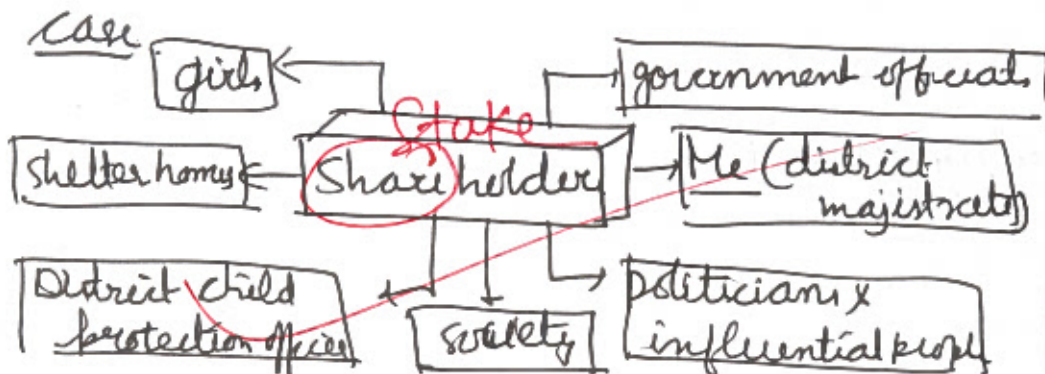 case
girls
government officials
Stake
shelter homes
Shareholder
Me (district
majistrates)
District child
protection officer
society
politicians &
influential people